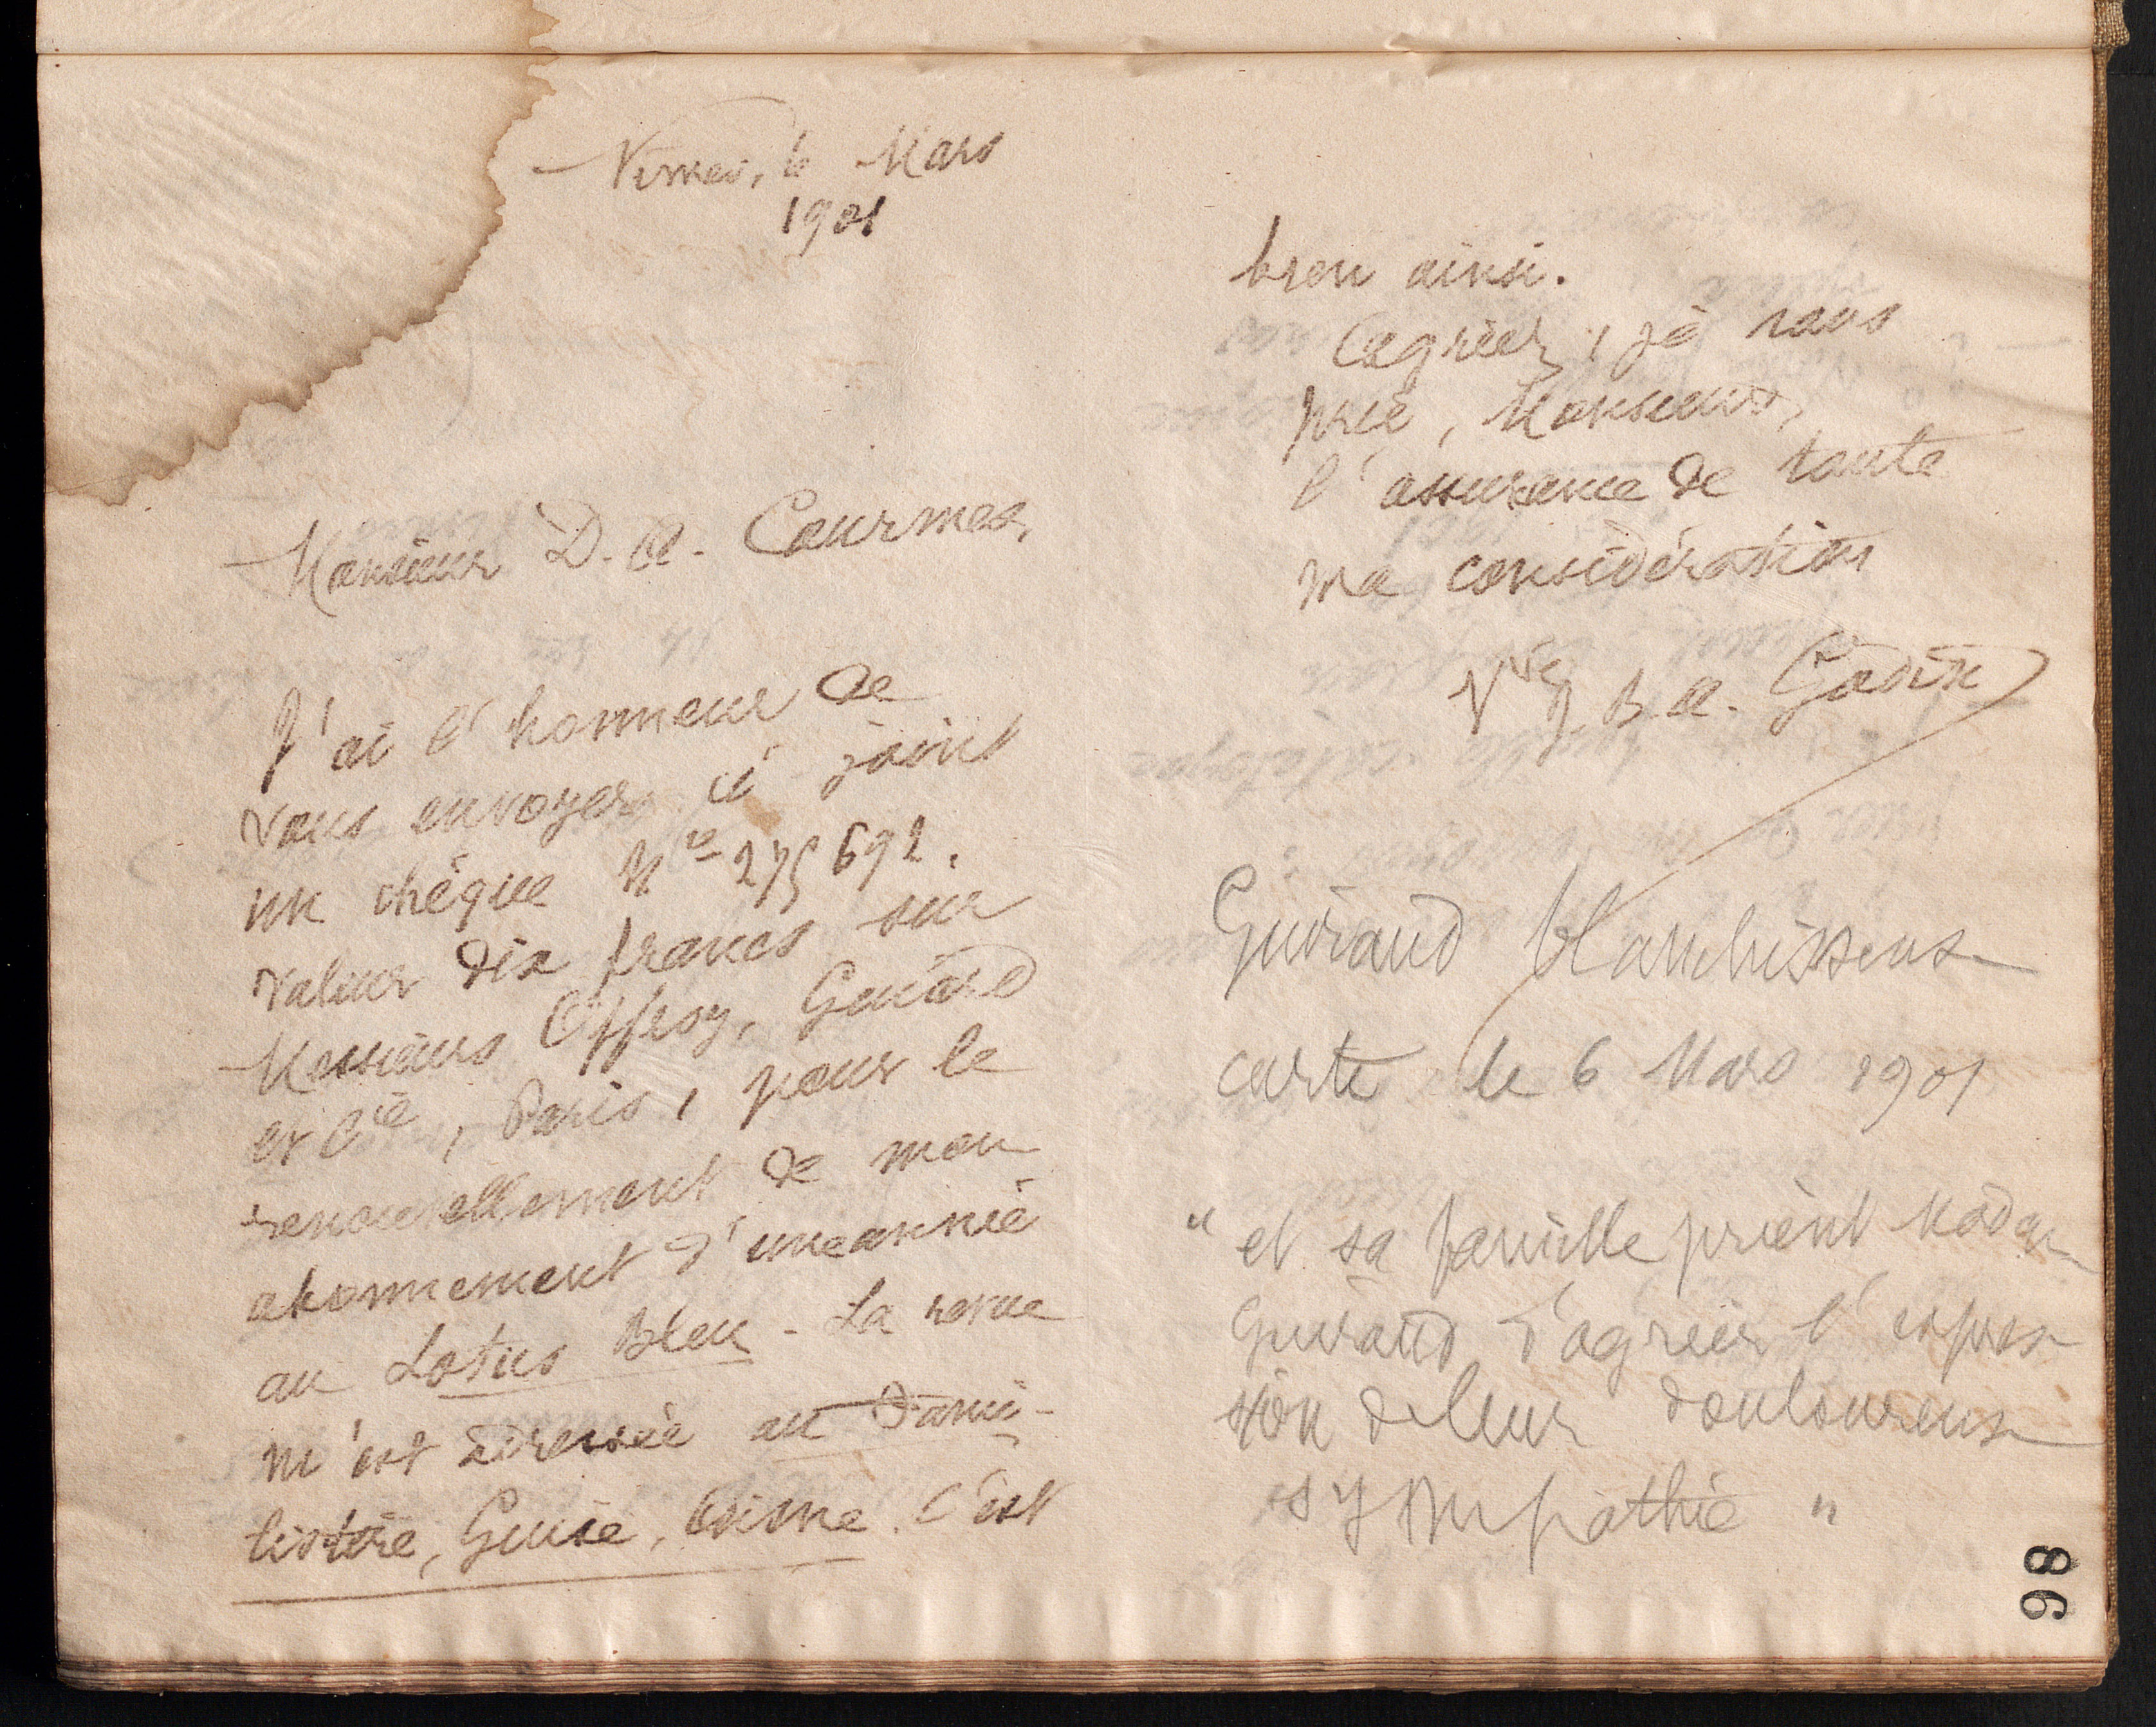 Nîmes, le Mars
1901
Monsieur D. A. Courmes,
J'ai l'honneur de
vous envoyer ci-joint
un chèque N° 275 692.
valeur dix francs sur
Messieurs Offroy, Guiard
et Cie, Paris, pour le
renouvellement de mon
abonnement d'une année
au Lotus Bleu - La revue
m'est adressée au Fami-
listère, Guise, Aisne. C'est
bien ainsi.
Agréer, je vous
prie, Monsieur,
l'assurance de toute
ma considération
Vve J. B. A. Godin
Guiraud blanchisseuse
carte le 6 Mars 1901
" et sa famille prient Madame
Guiraud d'agréer l'expres
sion de leur douloureuse
sympathie "
98